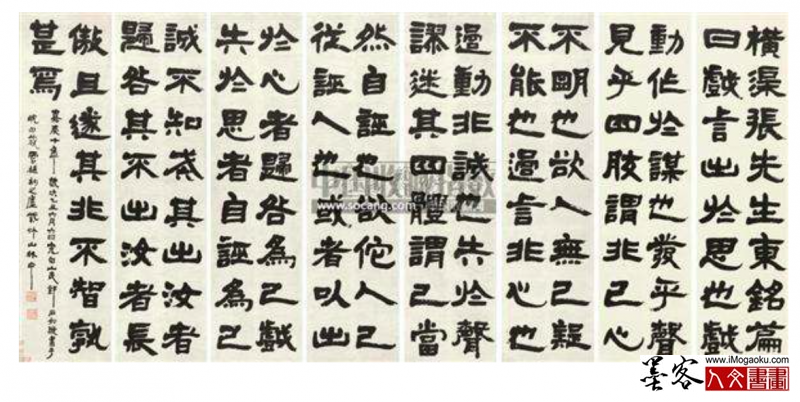 橫渠張先生東銘篇
曰戲言出於思也戲
動作於謀也發乎聲
見乎四肢謂非己心
不明也欲人無己疑
不能也過言非心也
過動非誠也失於聲
謬迷其四體謂己當
然自誣也欲佗人己
從誣人也或者以出
於心者歸咎為己戲
失於思者自誣為己
誠不知戒其出汝者
歸咎其不出汝者長
傲且遂其非不智孰
甚焉
www.socang.com
墨客 人文書畫
www.iMogaoku.com